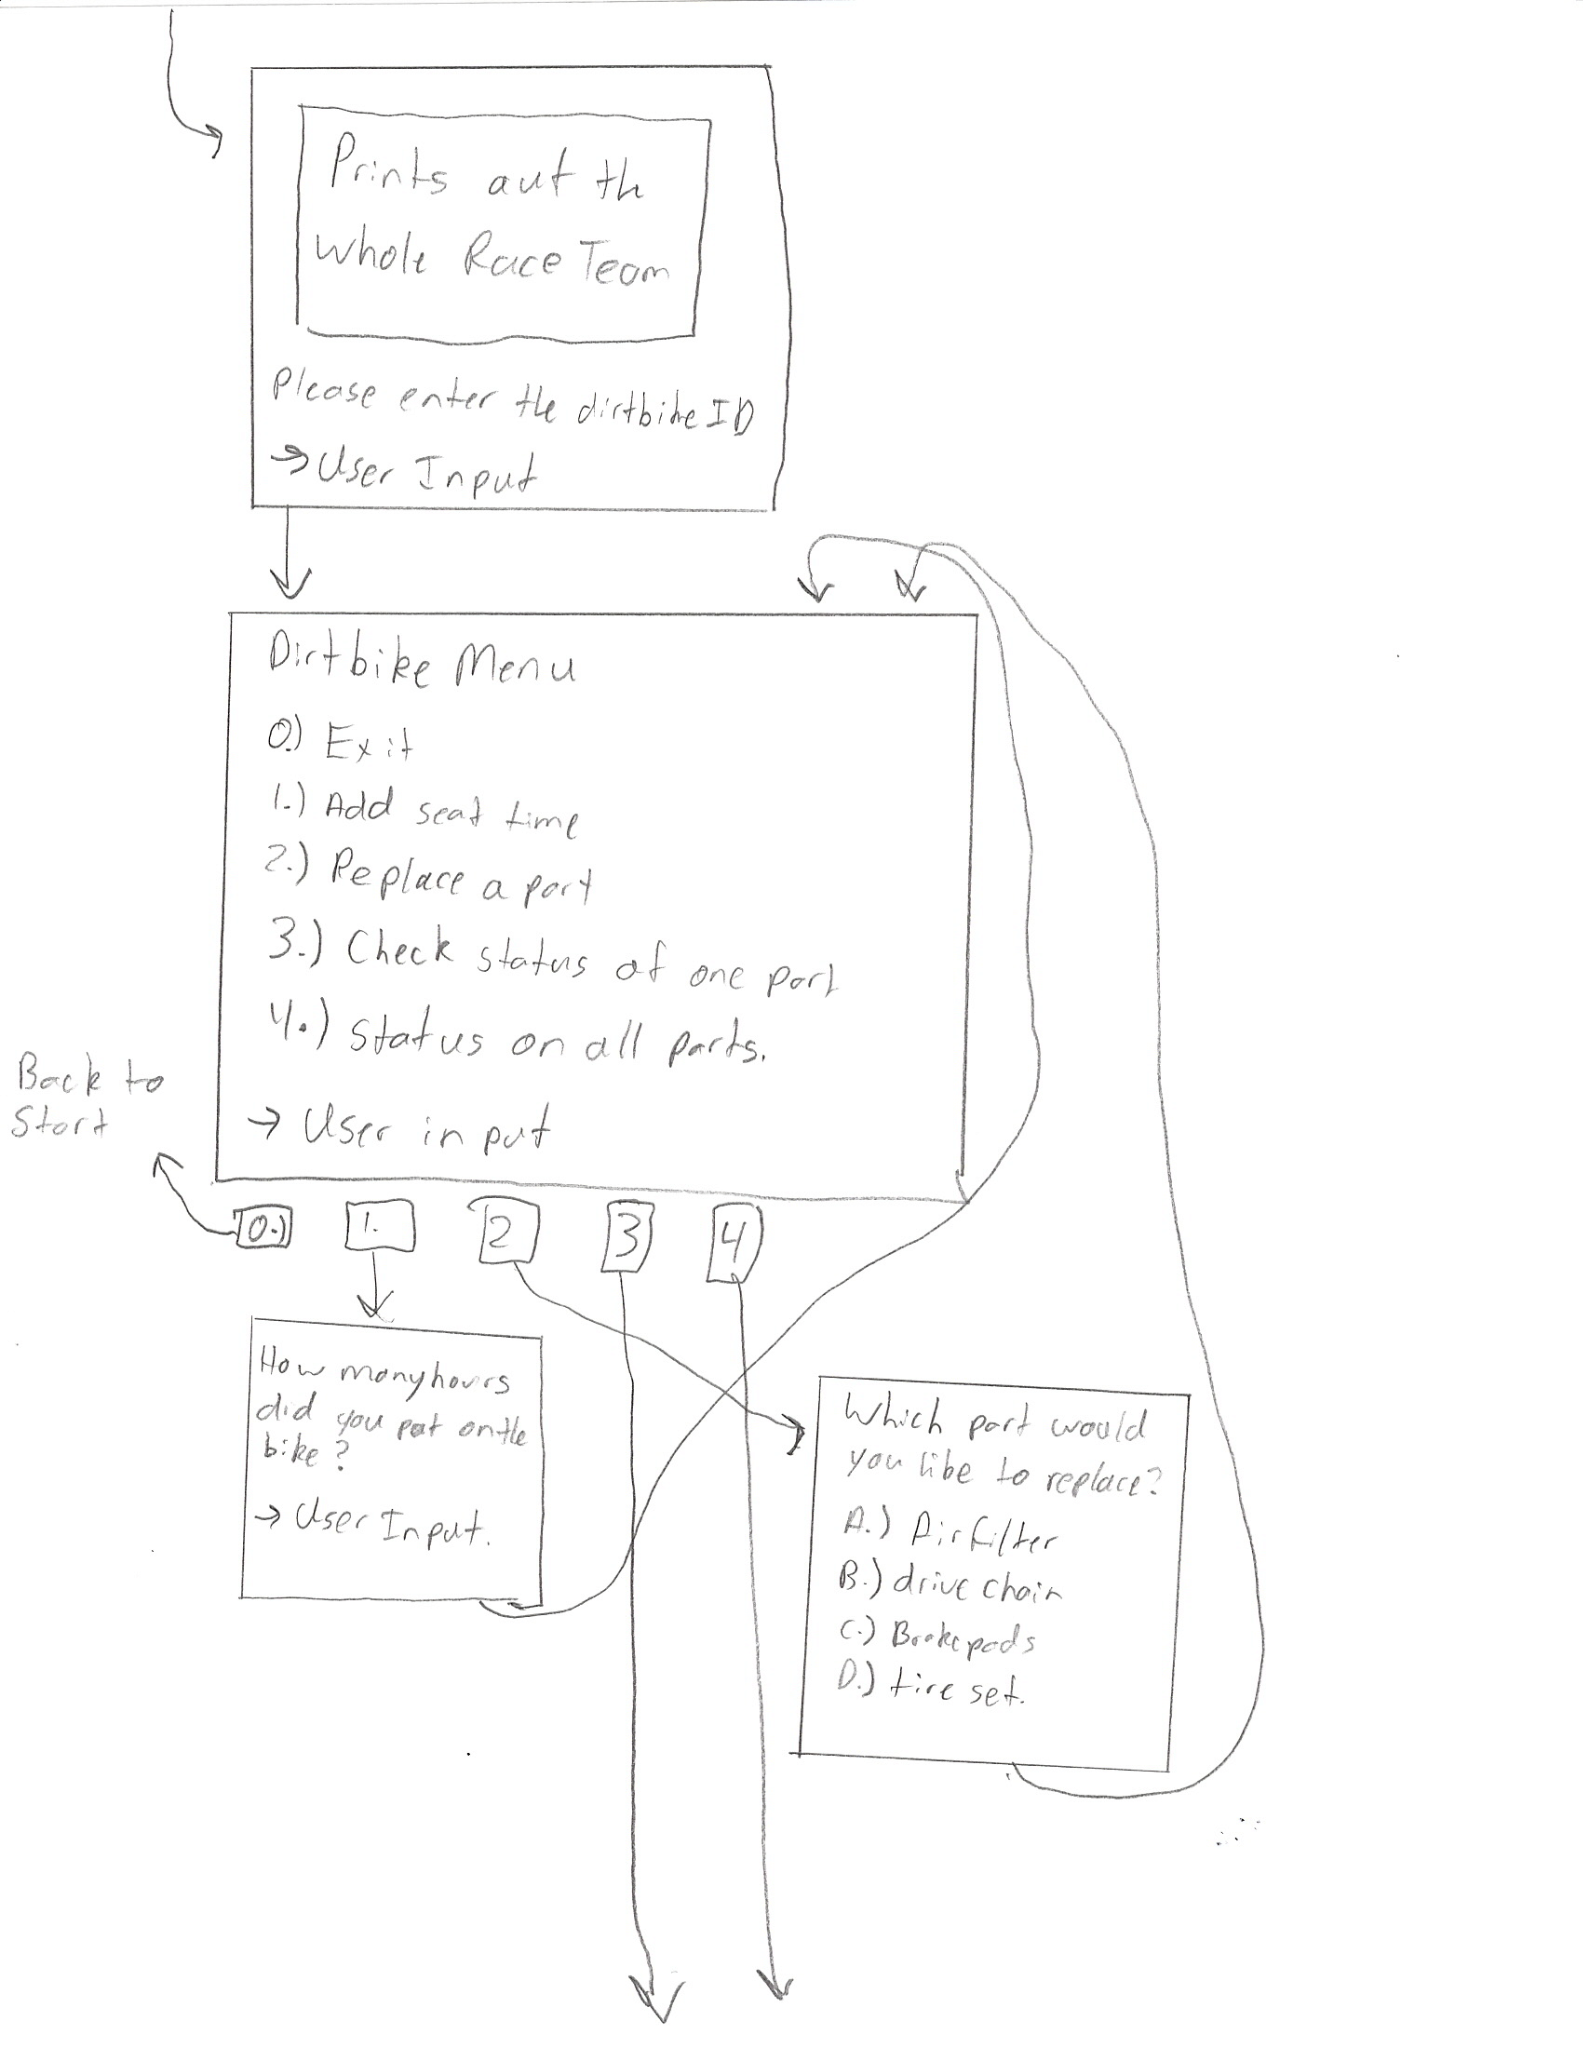 Prints out th
whole Race Team
Please enter the dirtbike ID
→ User Input
Dirtbike Menu
0.) Exit
1.) Add seat time
2.) Replace a part
3.) Check status of one part
4.) Status on all parts.
→ User input
Back to
Start
0.)
1.
2
3
4
How many hours
did you put on the
bike?
→ User Input.
Which part would
you like to replace?
A.) Airfilter
B.) drive chain
C.) Brakepads
D.) tire set.